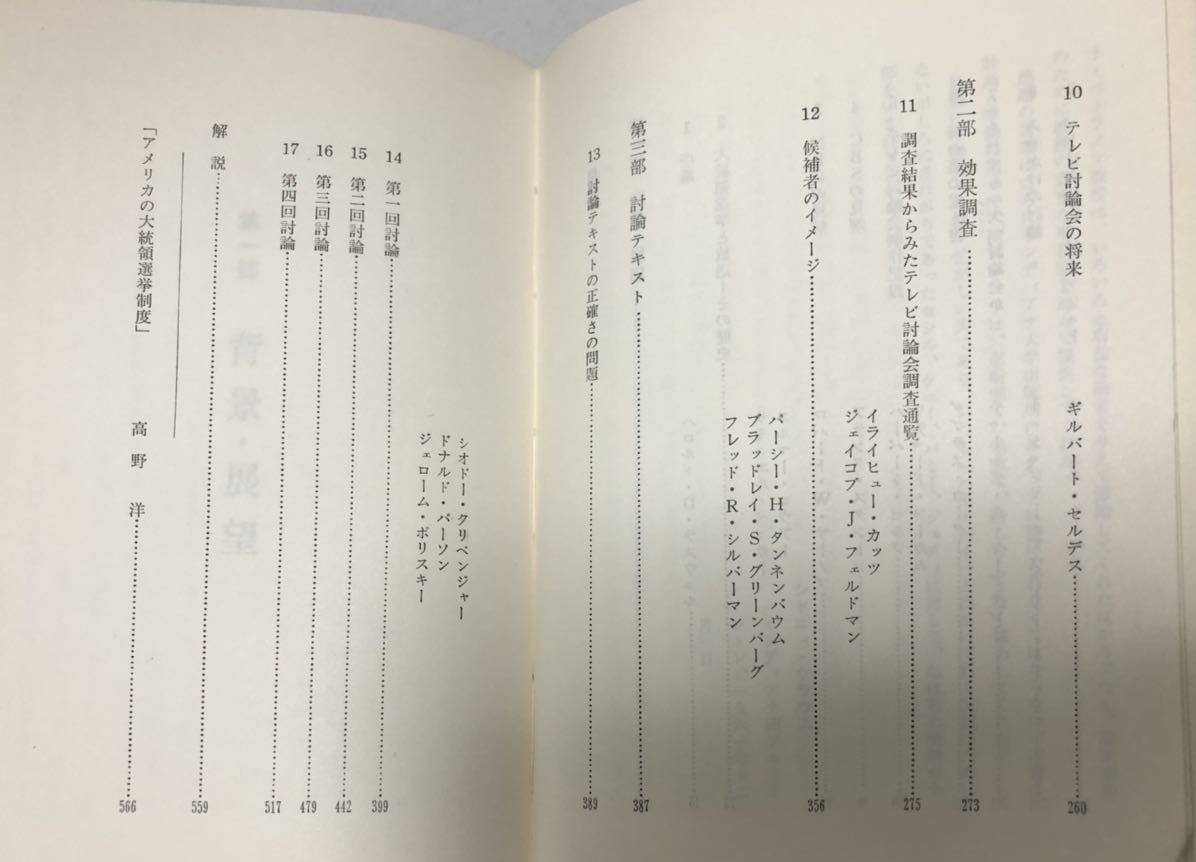 10 テレビ討論会の将来 ギルバート・セルデス……260
第二部 効果調査……273
11 調査結果からみたテレビ討論会調査通覧……275
イライヒュー・カッツ
ジェイコブ・J・フェルドマン
12 候補者のイメージ……356
パーシー・H・タンネンバウム
ブラッドレイ・S・グリーンバーグ
フレッド・R・シルバーマン
第三部 討論テキスト……387
13 討論テキストの正確さの問題……389
シオドー・クリベンジャー
ドナルド・パーソン
ジェローム・ポリスキー
14 第一回討論……399
15 第二回討論……442
16 第三回討論……479
17 第四回討論……517
解説……559
「アメリカの大統領選挙制度」 高野 洋……566